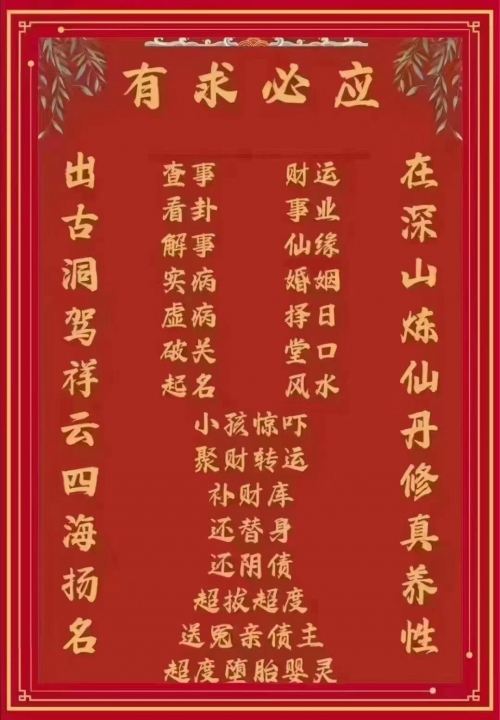 有求必应
在深山炼仙丹修真养性
出古洞驾祥云四海扬名
查事 财运
看卦 事业
解事 仙缘
实病 婚姻
虚病 择日
破关 堂口
起名 风水
小孩惊吓
聚财转运
补财库
还替身
还阴债
超拔超度
送冤亲债主
超度堕胎婴灵